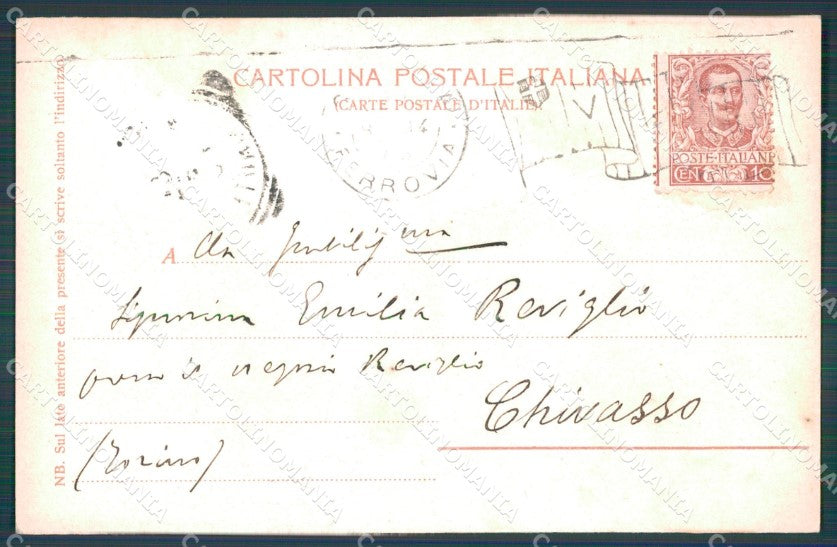 CARTOLINA POSTALE ITALIANA
(CARTE POSTALE D'ITALIE)
FERROVIA
POSTE·ITALIANE
CENT. 10
A lla Gentilissma
Signorina Emilia Reviglio
presso il negozio Reviglio
Chivasso
(Torino)
NB. Sul lato anteriore della presente si scrive soltanto l'indirizzo.
CARTOLINOMANIA